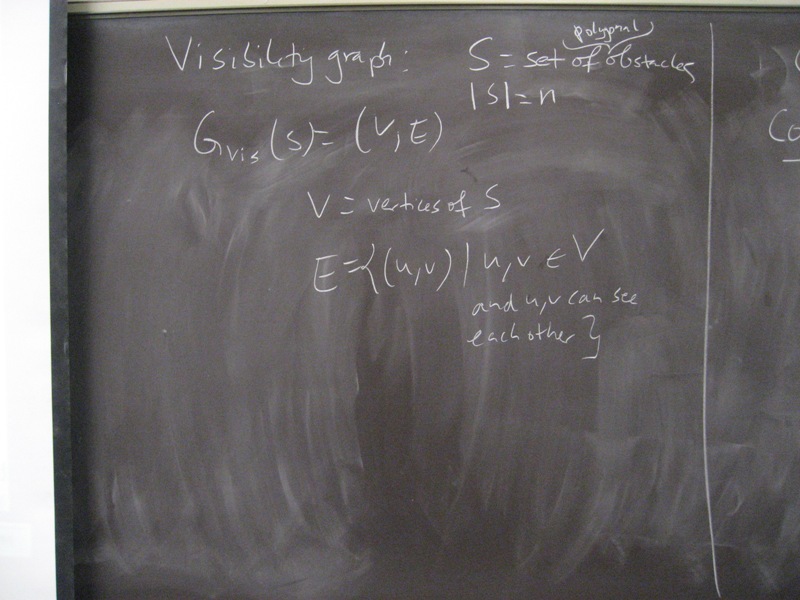 Visibility graph:
S = set of polygonal obstacles
|S| = n
G_vis(S) = (V, E)
V = vertices of S
E = {(u,v) | u,v ∈ V
and u,v can see
each other }